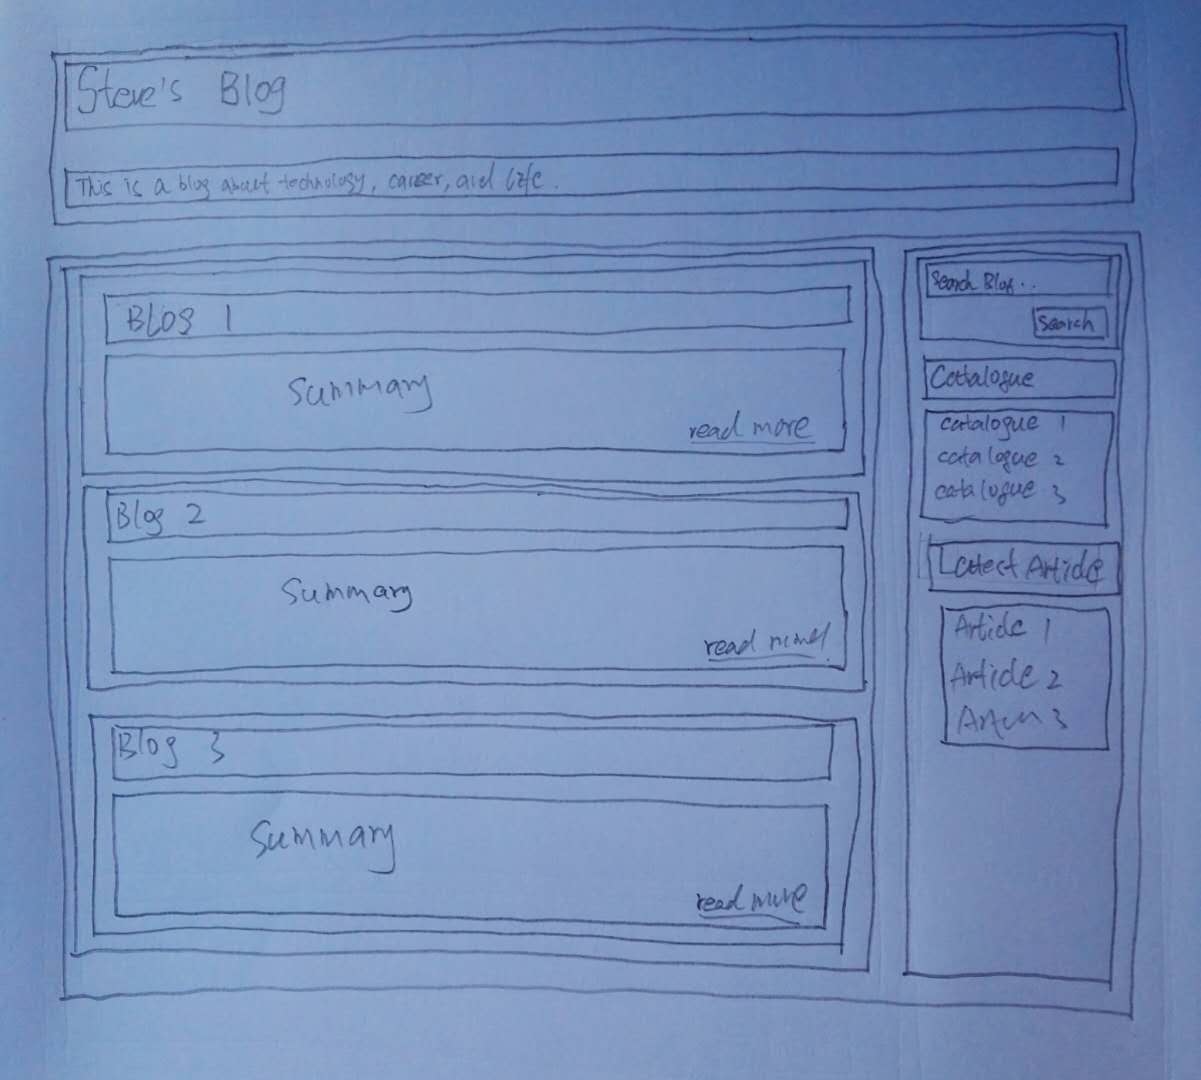 Steve's Blog
This is a blog about technology, career, and life.
Blog 1
Summary
read more
Blog 2
Summary
read
Blog 3
Summary
read more
Search Blog..
Search
Catalogue
catalogue 1
catalogue 2
catalogue 3
Latest Article
Article 1
Article 2
3